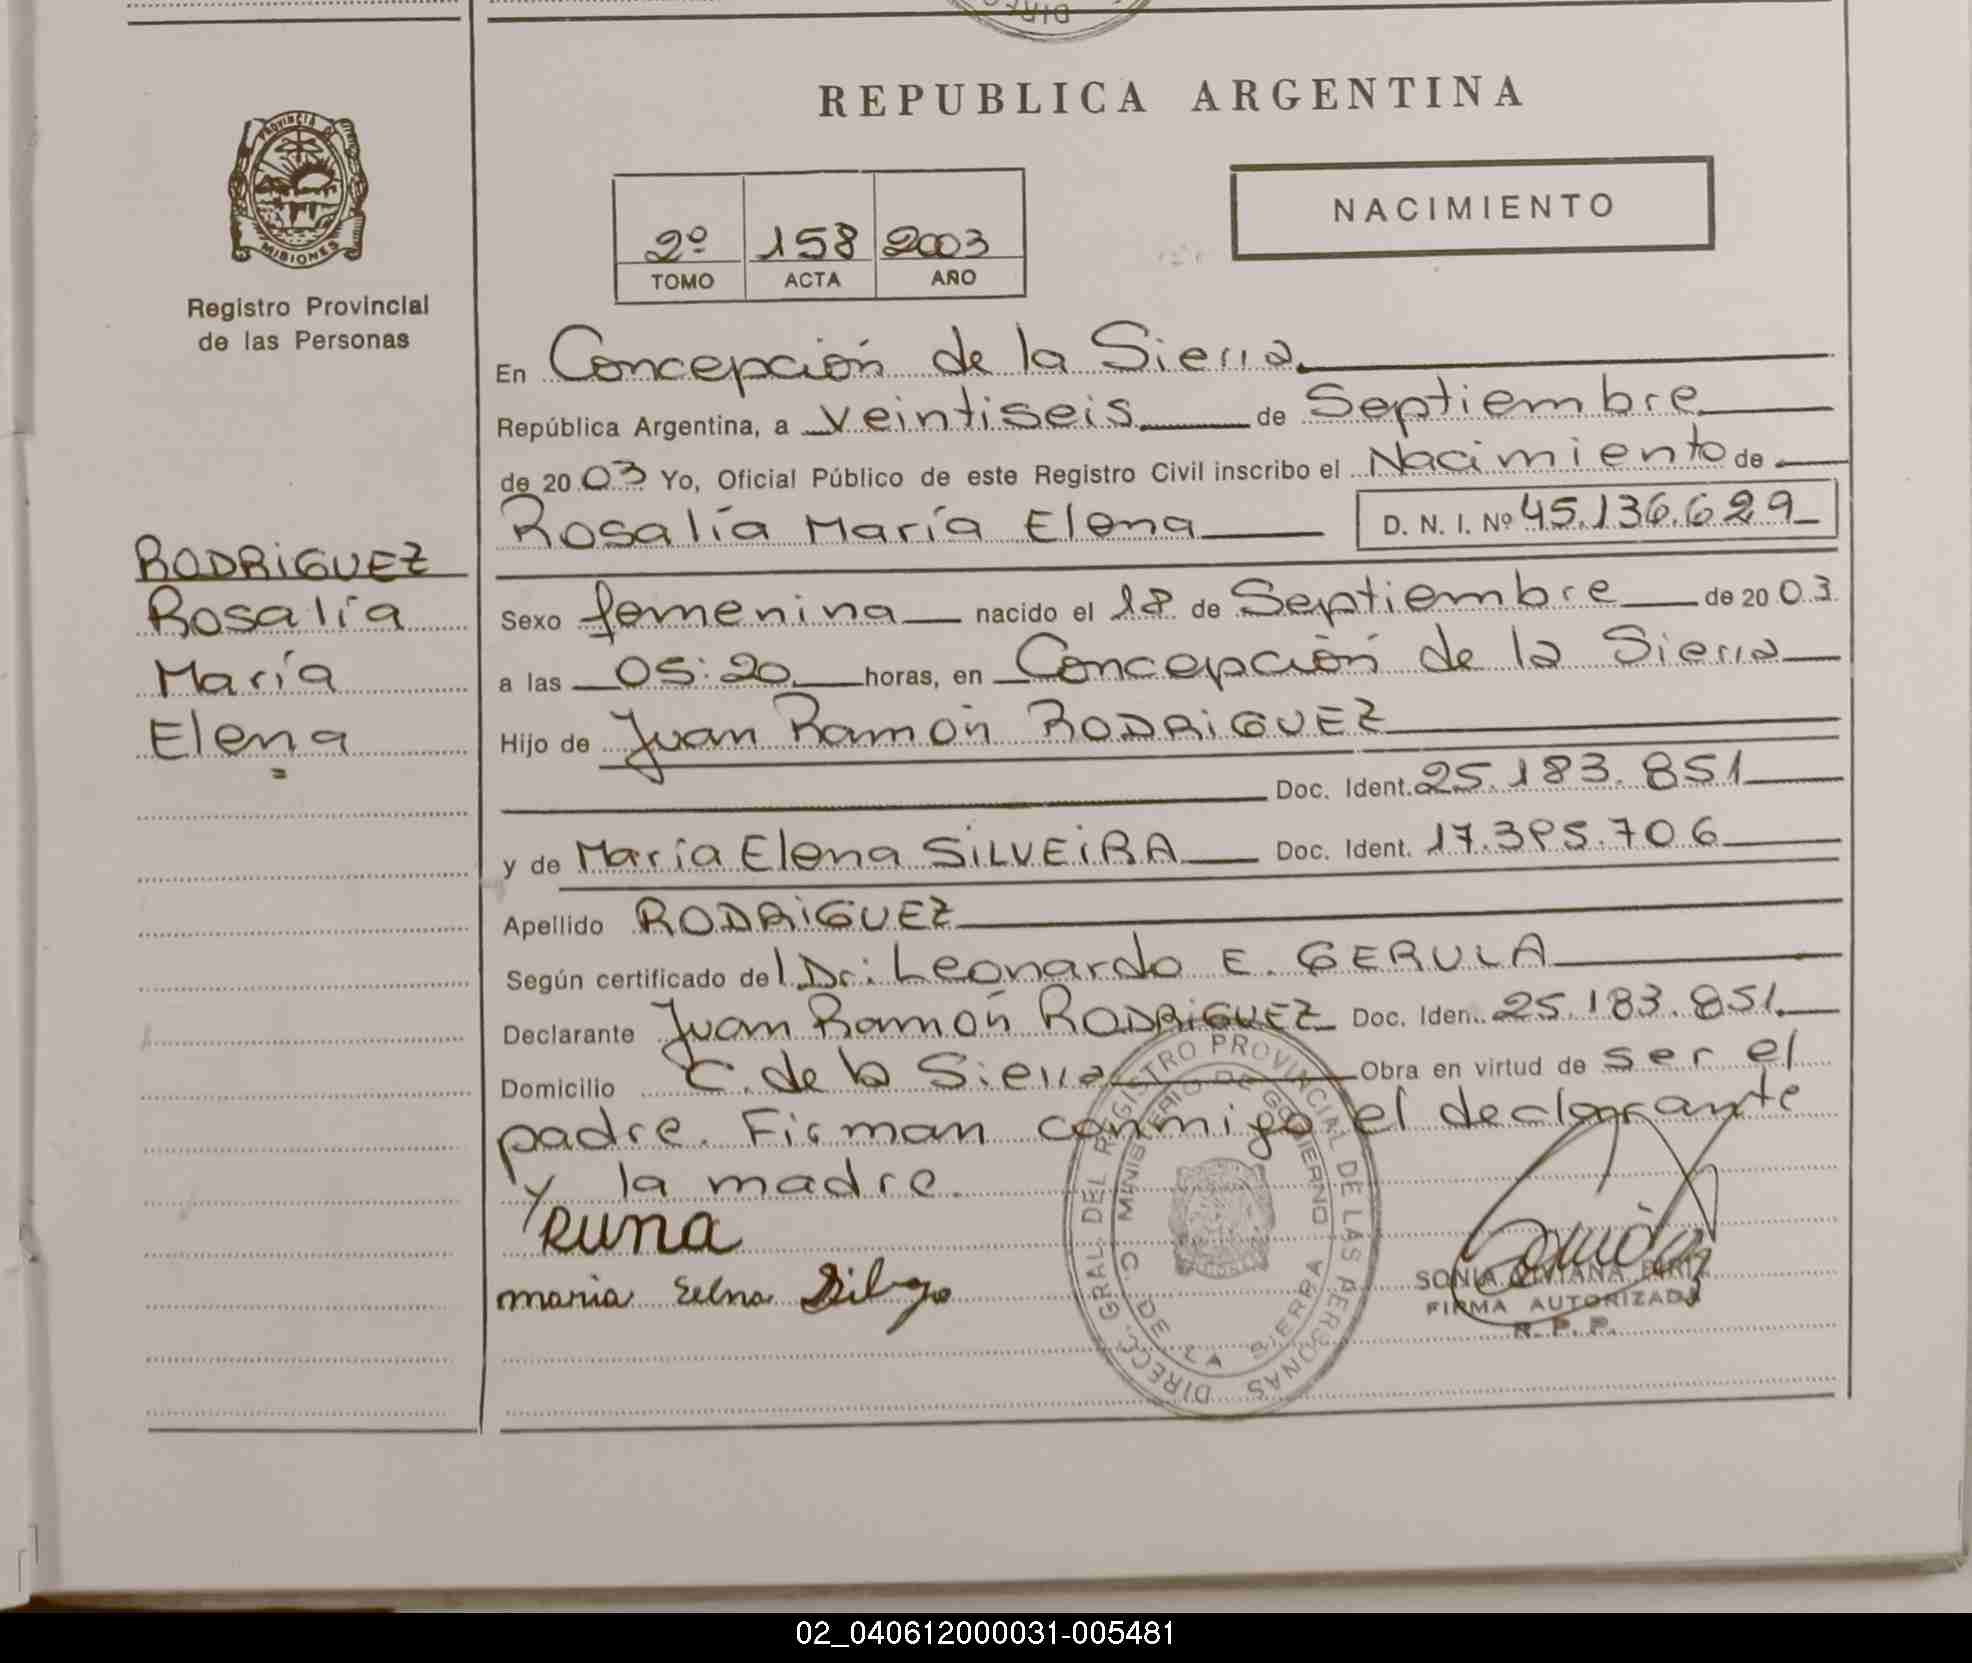 REPUBLICA ARGENTINA
PROVINCIA DE
MISIONES
Registro Provincial
de las Personas
2º 158 2003
TOMO ACTA AÑO
NACIMIENTO
En Concepción de la Sierra
República Argentina, a veintiseis de Septiembre
de 2003 Yo, Oficial Público de este Registro Civil inscribo el Nacimiento de
Rosalía María Elena D. N. I. Nº 45.136.629
RODRiGUEZ
Rosalía
María
Elena
Sexo femenina nacido el 18 de Septiembre de 2003
a las 05:20 horas, en Concepción de la Sierra
Hijo de Juan Ramón RODRiGUEZ
Doc. Ident. 25.183.851
y de María Elena SiLVEiRA Doc. Ident. 17.395.706
Apellido RODRiGUEZ
Según certificado del Dr: Leonardo E. GERULA
Declarante Juan Ramón RODRiGUEZ Doc. Iden. 25.183.851
Domicilio C. de la Sierra Obra en virtud de ser el
padre. Firman conmigo el declarante
y la madre.
maria Selna
DIRECC. GRAL. DEL REGISTRO PROVINCIAL DE LAS PERSONAS
MINISTERIO DE GOBIERNO
C. DE LA SIERRA
SONIA VIVIANA
FIRMA AUTORIZADA
R. P. P.
02_040612000031-005481